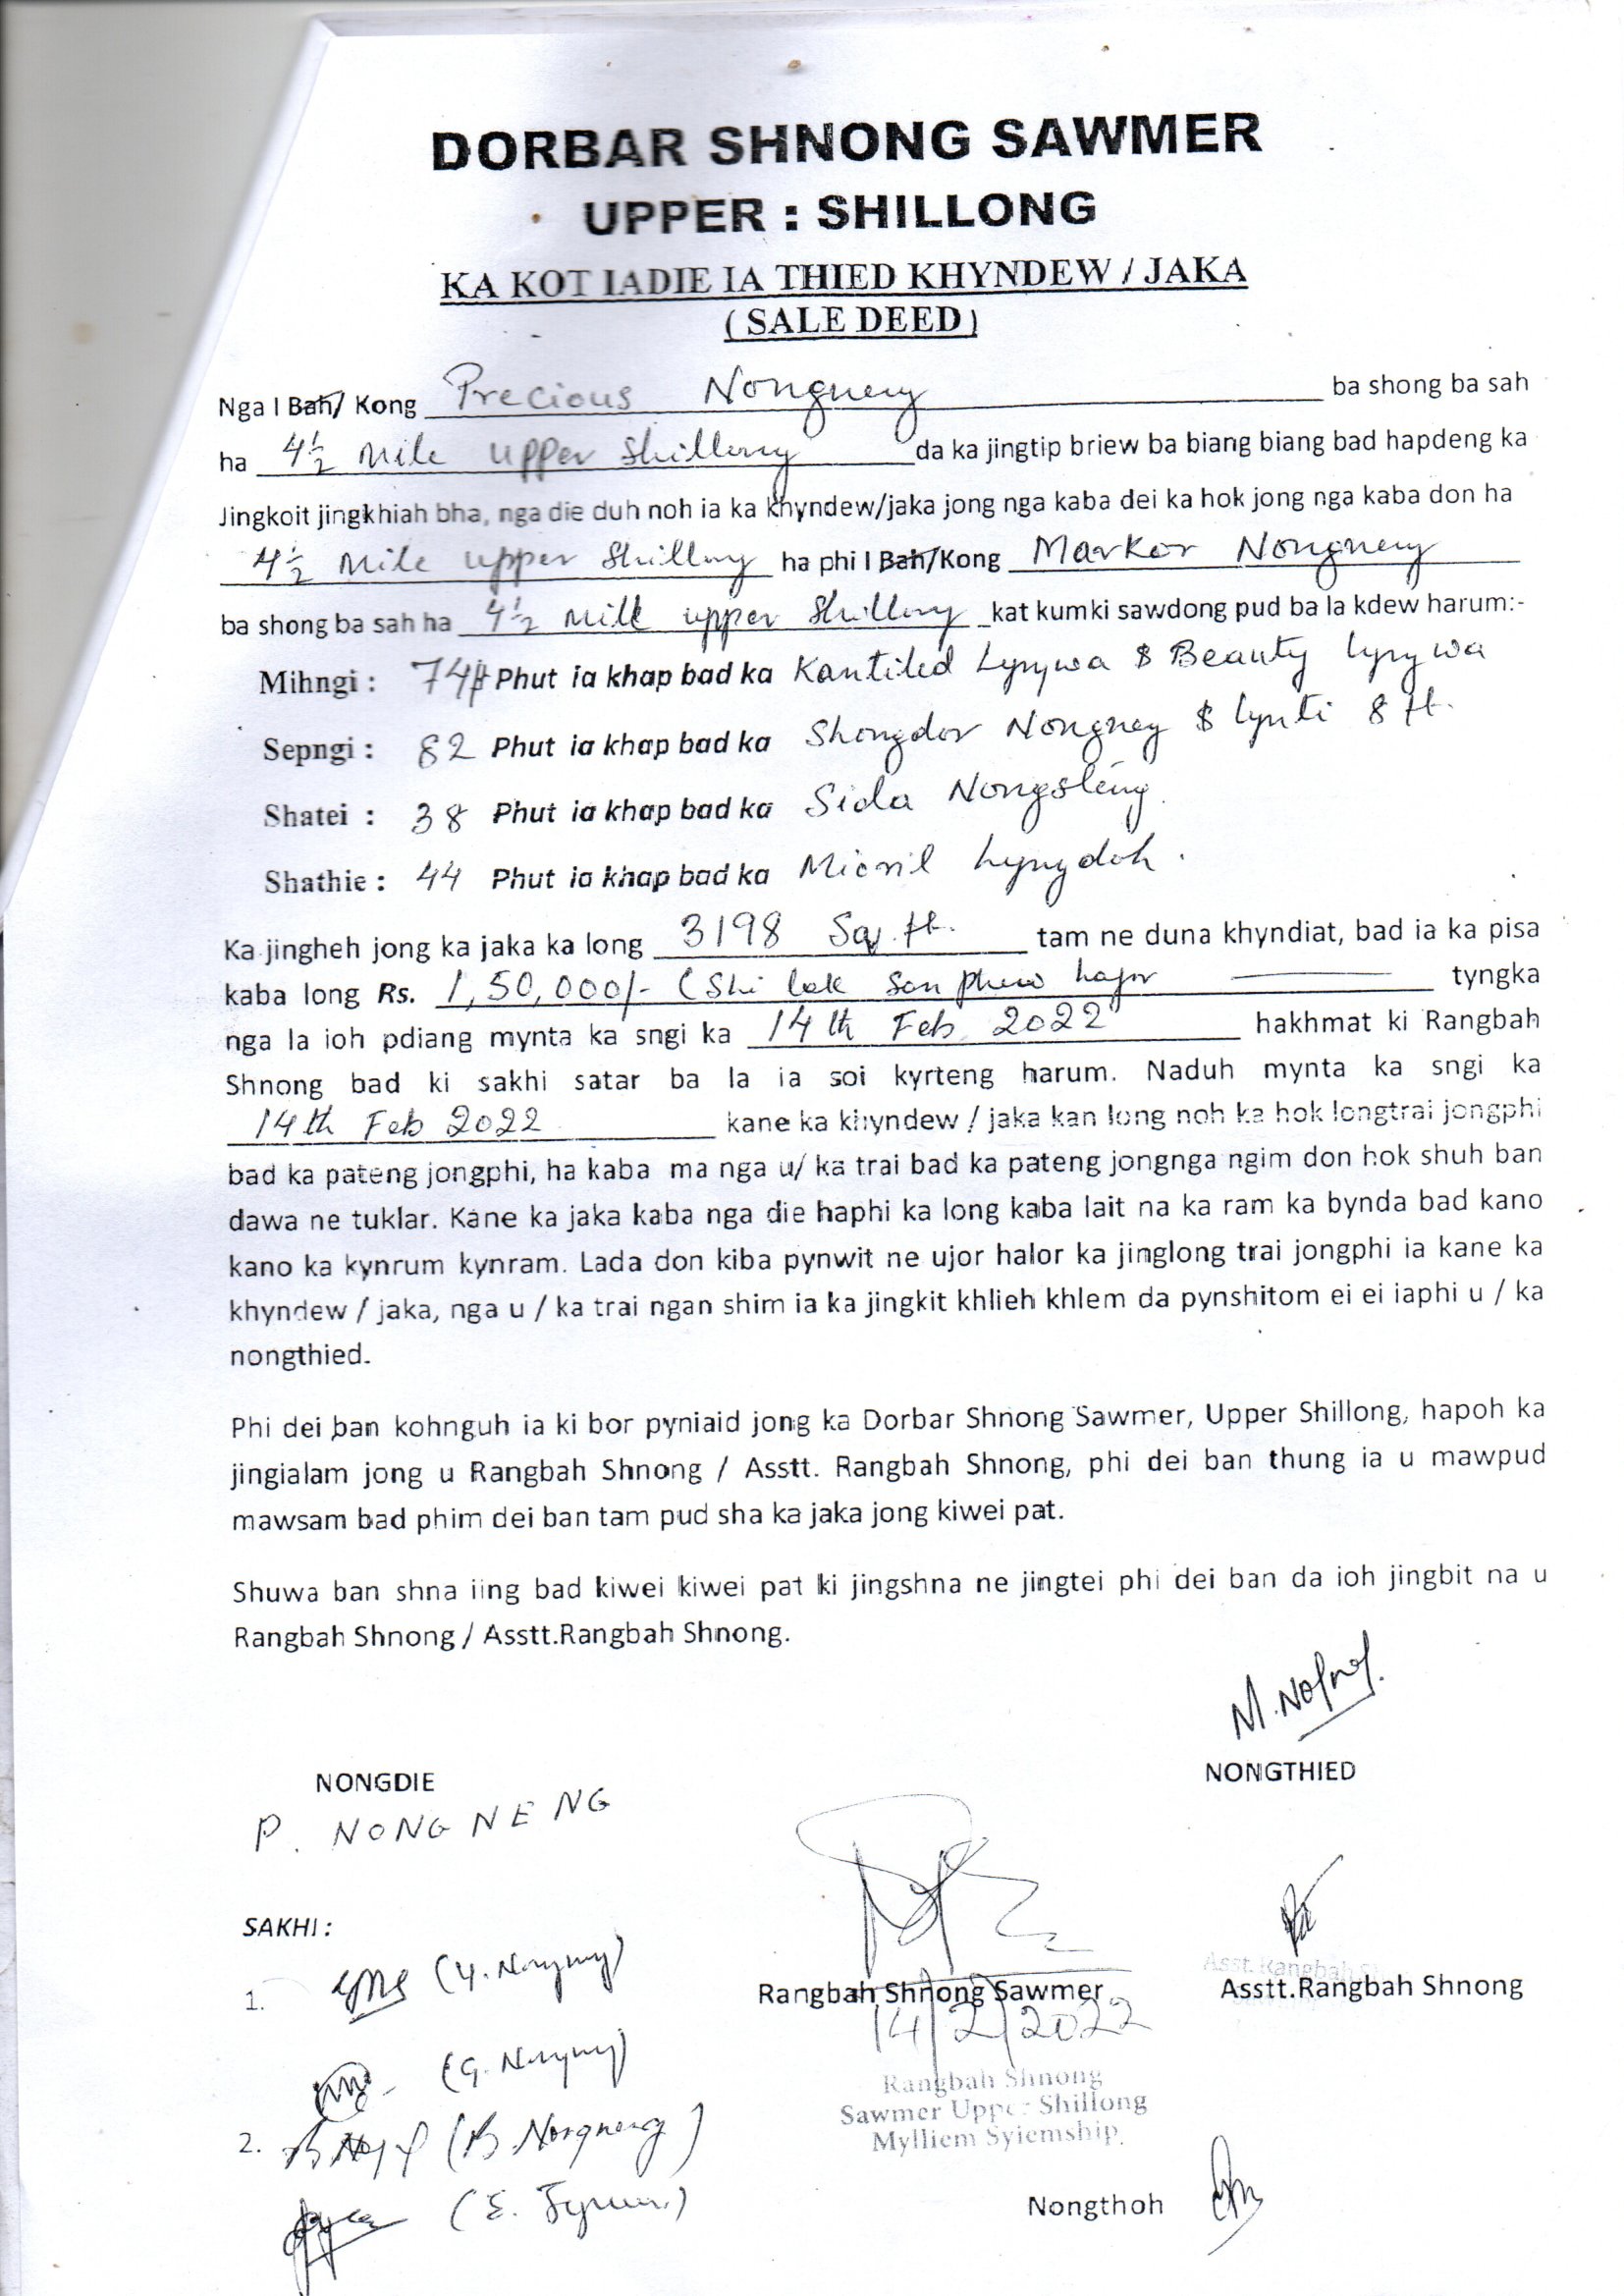 DORBAR SHNONG SAWMER
UPPER : SHILLONG
KA KOT IADIE IA THIED KHYNDEW / JAKA
( SALE DEED )
Nga I Bah/ Kong Precious Nongneng ba shong ba sah
ha 4½ Mile upper Shillong da ka jingtip briew ba biang biang bad hapdeng ka
Jingkoit jingkhiah bha, nga die duh noh ia ka khyndew/jaka jong nga kaba dei ka hok jong nga kaba don ha
4½ Mile upper Shillong ha phi I Bah/Kong Markor Nongneng
ba shong ba sah ha 4½ Mile upper Shillong kat kumki sawdong pud ba la kdew harum:-
Mihngi : 74 Phut ia khap bad ka Kantiled Lyngwa & Beauty Lyngwa
Sepngi : 82 Phut ia khap bad ka Shongdor Nongneng & lynti 8 ft.
Shatei : 38 Phut ia khap bad ka Sida Nongsteng
Shathie : 44 Phut ia khap bad ka Lyngdoh.
Ka jingheh jong ka jaka ka long 3198 Sq. ft. tam ne duna khyndiat, bad ia ka pisa
kaba long Rs. 1,50,000/- (Shi lak san phew hajar tyngka
nga la ioh pdiang mynta ka sngi ka 14th Feb 2022 hakhmat ki Rangbah
Shnong bad ki sakhi satar ba la ia soi kyrteng harum. Naduh mynta ka sngi ka
14th Feb 2022 kane ka khyndew / jaka kan long noh ka hok longtrai jongphi
bad ka pateng jongphi, ha kaba ma nga u/ ka trai bad ka pateng jongnga ngim don hok shuh ban
dawa ne tuklar. Kane ka jaka kaba nga die haphi ka long kaba lait na ka ram ka bynda bad kano
kano ka kynrum kynram. Lada don kiba pynwit ne ujor halor ka jinglong trai jongphi ia kane ka
khyndew / jaka, nga u / ka trai ngan shim ia ka jingkit khlieh khlem da pynshitom ei ei iaphi u / ka
nongthied.
Phi dei ban kohnguh ia ki bor pyniaid jong ka Dorbar Shnong Sawmer, Upper Shillong, hapoh ka
jingialam jong u Rangbah Shnong / Asstt. Rangbah Shnong, phi dei ban thung ia u mawpud
mawsam bad phim dei ban tam pud sha ka jaka jong kiwei pat.
Shuwa ban shna iing bad kiwei kiwei pat ki jingshna ne jingtei phi dei ban da ioh jingbit na u
Rangbah Shnong / Asstt.Rangbah Shnong.
NONGDIE
NONGTHIED
P. NONGNENG
SAKHI :
1. (Y. Nongneng)
Rangbah Shnong Sawmer
Asstt.Rangbah Shnong
14/2/2022
(G. Nongneng)
Rangbah Shnong
Sawmer Upper Shillong
Mylliem Syiemship
2. (B. Nongneng)
(E.
Nongthoh